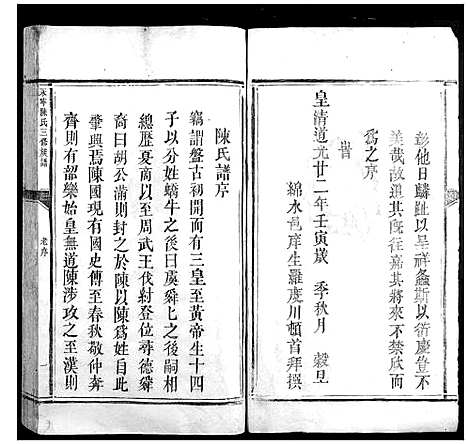 彭他日麟趾以呈祥螽斯以衍慶豈不
美哉故追其既往嘉其將來不禁欣而
為之序
皇清道光廿二年壬寅歲 季秋月 穀旦
綿水邑庠生羅慶川頓首拜撰
永寧陳氏三修族譜
老序
一
陳氏譜序
竊謂盤古初開而有三皇至黃帝生十四
子以分姓蟜牛之後曰虞舜匕之後嗣相
總歷夏商以至周武王伐紂登位尋德舜
裔曰胡公滿則封之於陳以陳為姓自此
肇興焉陳國現有國史傳至春秋敬仲奔
齊則有韶樂始皇無道陳涉攻之至漢則